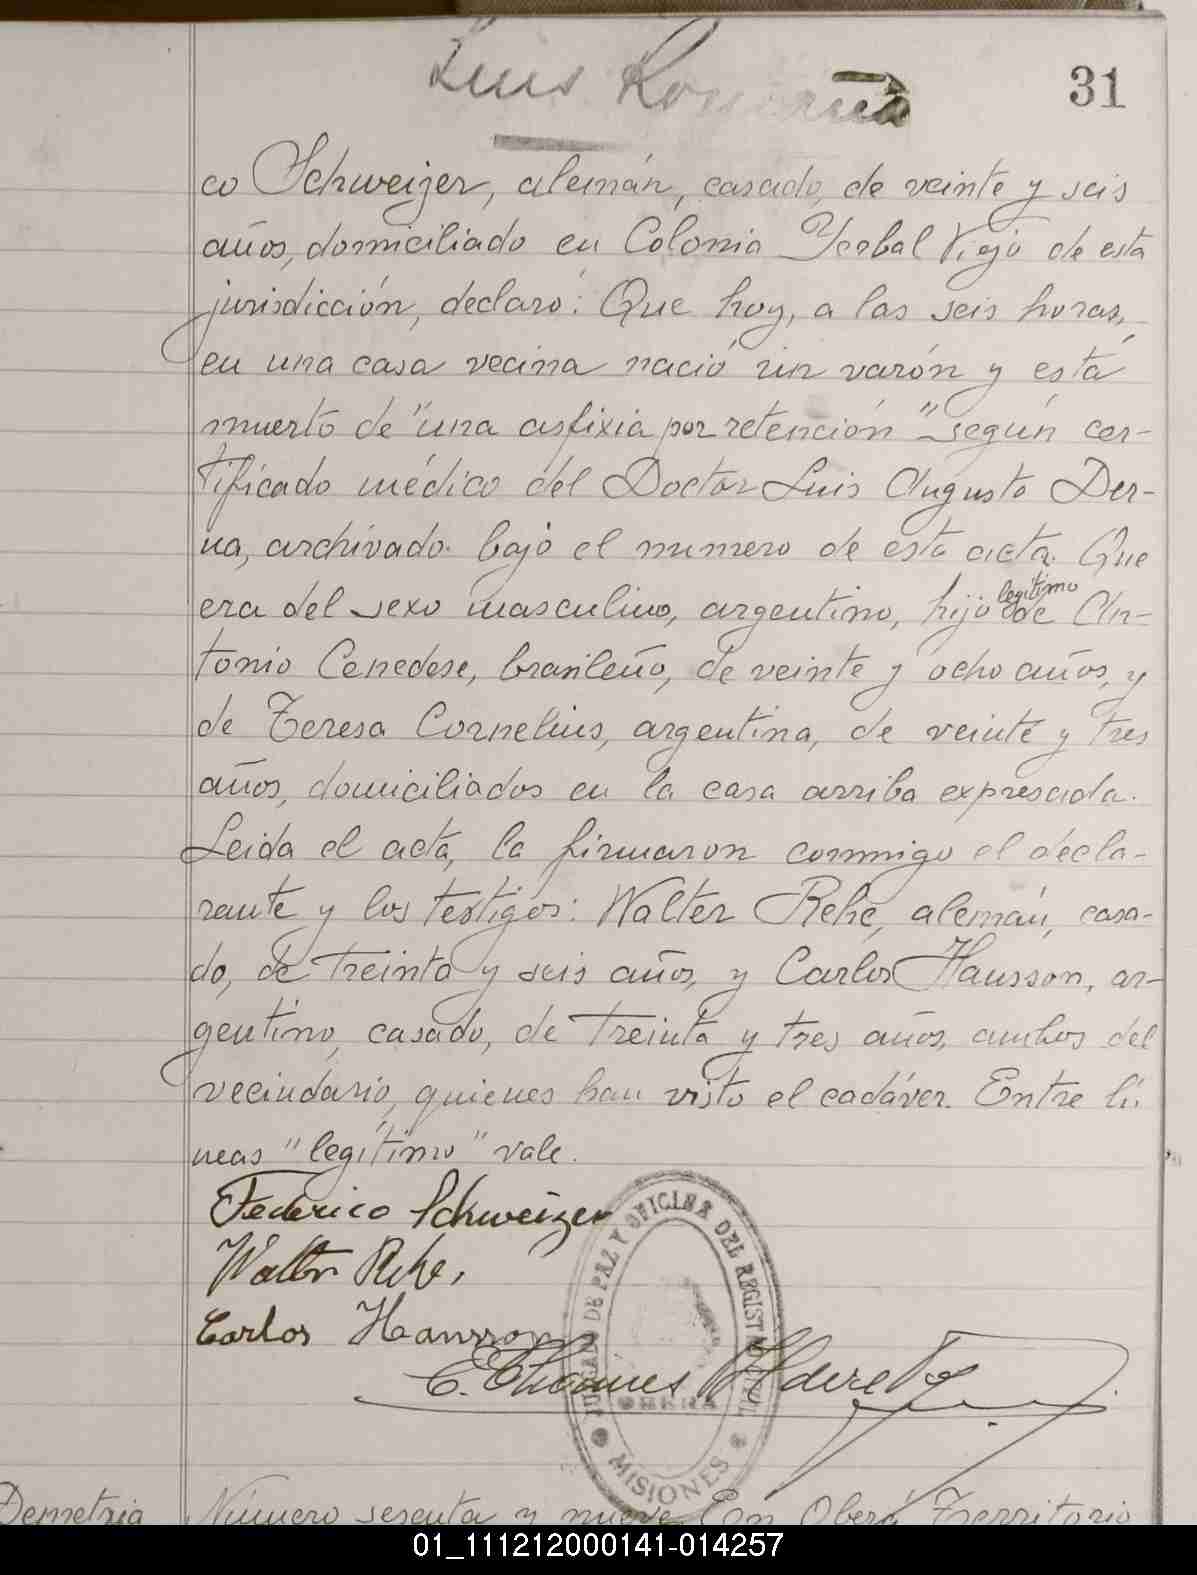 Luis
31
co Schweizer, alemán, casado, de veinte y seis
años, domiciliado en Colonia Yerbal Viejo de esta
jurisdicción, declaró: Que hoy, a las seis horas,
en una casa vecina nació un varón y está
muerto de "una asfixia por retención" según cer-
tificado médico del Doctor Luis Augusto Der-
na, archivado bajo el numero de esta acta. Que
era del sexo masculino, argentino, hijo legítimo de An-
tonio Cenedese, brasileño, de veinte y ocho años, y
de Teresa Cornelius, argentina, de veinte y tres
años, domiciliados en la casa arriba expresada.
Leida el acta, la firmaron conmigo el decla-
rante y los testigos: Walter Rehe, alemán, casa-
do, de treinta y seis años, y Carlos Hansson, ar-
gentino, casado, de treinta y tres años, ambos del
vecindario, quienes han visto el cadáver. Entre lí-
neas "legítimo" vale.
Federico Schweizer
Walter Rehe,
Carlos Hansson
JUZGADO DE PAZ Y OFICINA DEL REGISTRO CIVIL
OBERA
MISIONES
Demetria
Número sesenta y nueve En Oberá Territorio
01_111212000141-014257